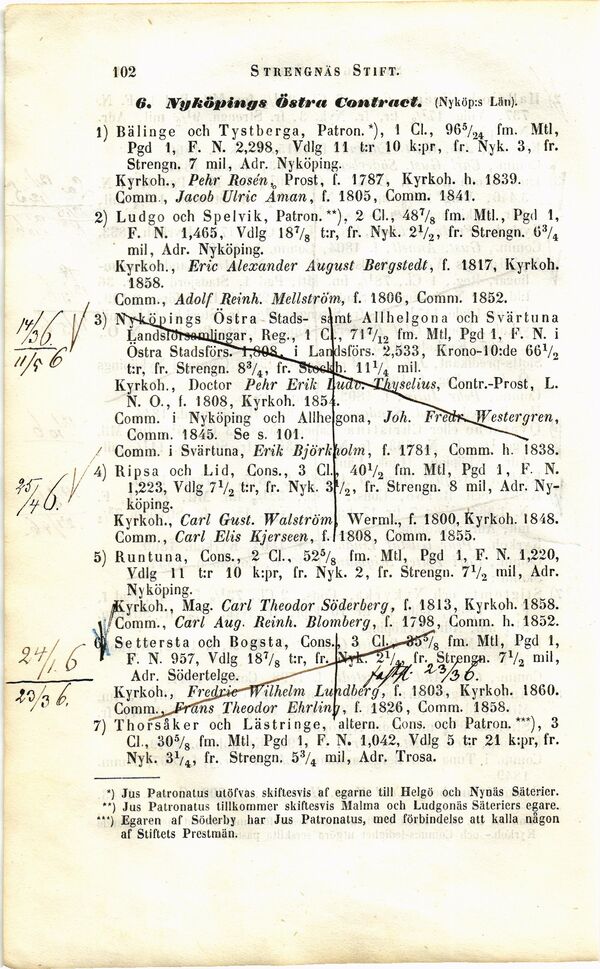 102 STRENGNÄS STIFT.
6. Nyköpings Östra Contract. (Nyköp:s Län).
1) Bälinge och Tystberga, Patron.*), 1 Cl., 96 5/24 fm. Mtl,
Pgd 1, F. N. 2,298, Vdlg 11 t:r 10 k:pr, fr. Nyk. 3, fr.
Strengn. 7 mil, Adr. Nyköping.
Kyrkoh., Pehr Rosén, Prost, f. 1787, Kyrkoh. h. 1839.
Comm., Jacob Ulric Åman, f. 1805, Comm. 1841.
2) Ludgo och Spelvik, Patron.**), 2 Cl., 48 7/8 fm. Mtl., Pgd 1,
F. N. 1,465, Vdlg 18 7/8 t:r, fr. Nyk. 2 1/2, fr. Strengn. 6 3/4
mil, Adr. Nyköping.
Kyrkoh., Eric Alexander August Bergstedt, f. 1817, Kyrkoh.
1858.
Comm., Adolf Reinh. Mellström, f. 1806, Comm. 1852.
14/36
11/5 6
3) Nyköpings Östra Stads- samt Allhelgona och Svärtuna
Landsförsamlingar, Reg., 1 Cl., 71 7/12 fm. Mtl, Pgd 1, F. N. i
Östra Stadsförs. 1,808, i Landsförs. 2,533, Krono-10:de 66 1/2
t:r, fr. Strengn. 8 3/4, fr. Stockh. 11 1/4 mil.
Kyrkoh., Doctor Pehr Erik Ludv. Thyselius, Contr.-Prost, L.
N. O., f. 1808, Kyrkoh. 1854.
Comm. i Nyköping och Allhelgona, Joh. Fredr. Westergren,
Comm. 1845. Se s. 101.
Comm. i Svärtuna, Erik Björkholm, f. 1781, Comm. h. 1838.
25/4 6.
4) Ripsa och Lid, Cons., 3 Cl., 40 1/2 fm. Mtl, Pgd 1, F. N.
1,223, Vdlg 7 1/2 t:r, fr. Nyk. 3 1/2, fr. Strengn. 8 mil, Adr. Ny-
köping.
Kyrkoh., Carl Gust. Walström, Werml., f. 1800, Kyrkoh. 1848.
Comm., Carl Elis Kjerseen, f. 1808, Comm. 1855.
5) Runtuna, Cons., 2 Cl., 52 5/8 fm. Mtl, Pgd 1, F. N. 1,220,
Vdlg 11 t:r 10 k:pr, fr. Nyk. 2, fr. Strengn. 7 1/2 mil, Adr.
Nyköping.
Kyrkoh., Mag. Carl Theodor Söderberg, f. 1813, Kyrkoh. 1858.
Comm., Carl Aug. Reinh. Blomberg, f. 1798, Comm. h. 1852.
24/1 6
23/3 6.
6) Settersta och Bogsta, Cons., 3 Cl., 35 5/8 fm. Mtl, Pgd 1,
F. N. 957, Vdlg 18 7/8 t:r, fr. Nyk. 2 1/2, fr. Strengn. 7 1/2 mil,
Adr. Södertelge. 23/36.
Kyrkoh., Fredric Wilhelm Lundberg, f. 1803, Kyrkoh. 1860.
Comm., Frans Theodor Ehrling, f. 1826, Comm. 1858.
7) Thorsåker och Lästringe, altern. Cons. och Patron.***), 3
Cl., 30 5/8 fm. Mtl, Pgd 1, F. N. 1,042, Vdlg 5 t:r 21 k:pr, fr.
Nyk. 3 1/4, fr. Strengn. 5 3/4 mil, Adr. Trosa.
*) Jus Patronatus utöfvas skiftesvis af egarne till Helgö och Nynäs Säterier.
**) Jus Patronatus tillkommer skiftesvis Malma och Ludgonäs Säteriers egare.
***) Egaren af Söderby har Jus Patronatus, med förbindelse att kalla någon
af Stiftets Prestmän.